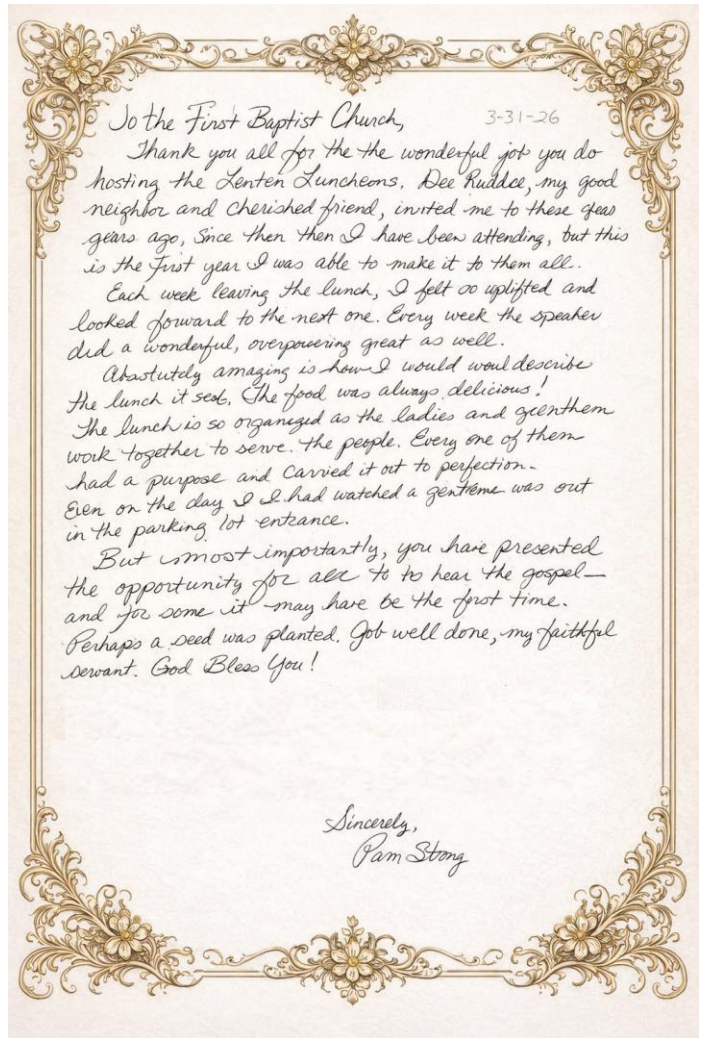 To the First Baptist Church, 3-31-26
Thank you all for the the wonderful job you do
hosting the Lenten Luncheons. Dee Ruddce, my good
neighbor and cherished friend, invited me to these
gears ago, Since then then I have been attending, but this
is the First year I was able to make it to them all.
Each week leaving the lunch, I felt so uplifted and
looked forward to the next one. Every week the speaker
did a wonderful, overpowering great as well.
Absolutely amazing is how I would woul describe
the lunch it seot. The food was always delicious!
The lunch is so organized as the ladies and
work together to serve. the people. Every one of them
had a purpose and carried it out to perfection.
Even on the day I I had watched a was out
in the parking lot entrance.
But most importantly, you have presented
the opportunity for all to to hear the gospel—
and for some it may have be the first time.
Perhaps a seed was planted. Job well done, my faithful
servant. God Bless You!
Sincerely,
Pam Strong